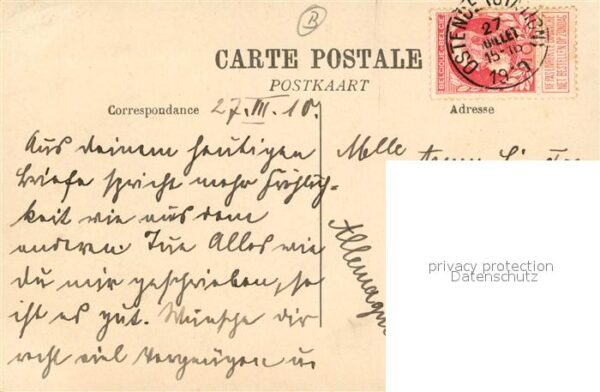 B
CARTE POSTALE
POSTKAART
Correspondance 27.VII.10.
Adresse
OSTENDE
27
JUILLET
15-16
BELGIQUE-BELGIË
NE PAS LIVRER LE DIMANCHE
NIET BESTELLEN OP ZONDAG
Aus deinem heutigen
Briefe spricht mehr Fröhlich-
keit wie aus dem
anderen. Tue Alles wie
du mir geschrieben, so
ist es gut. Wünsche dir
recht viel Vergnügen u.
Melle
Allemagne
privacy protection
Datenschutz